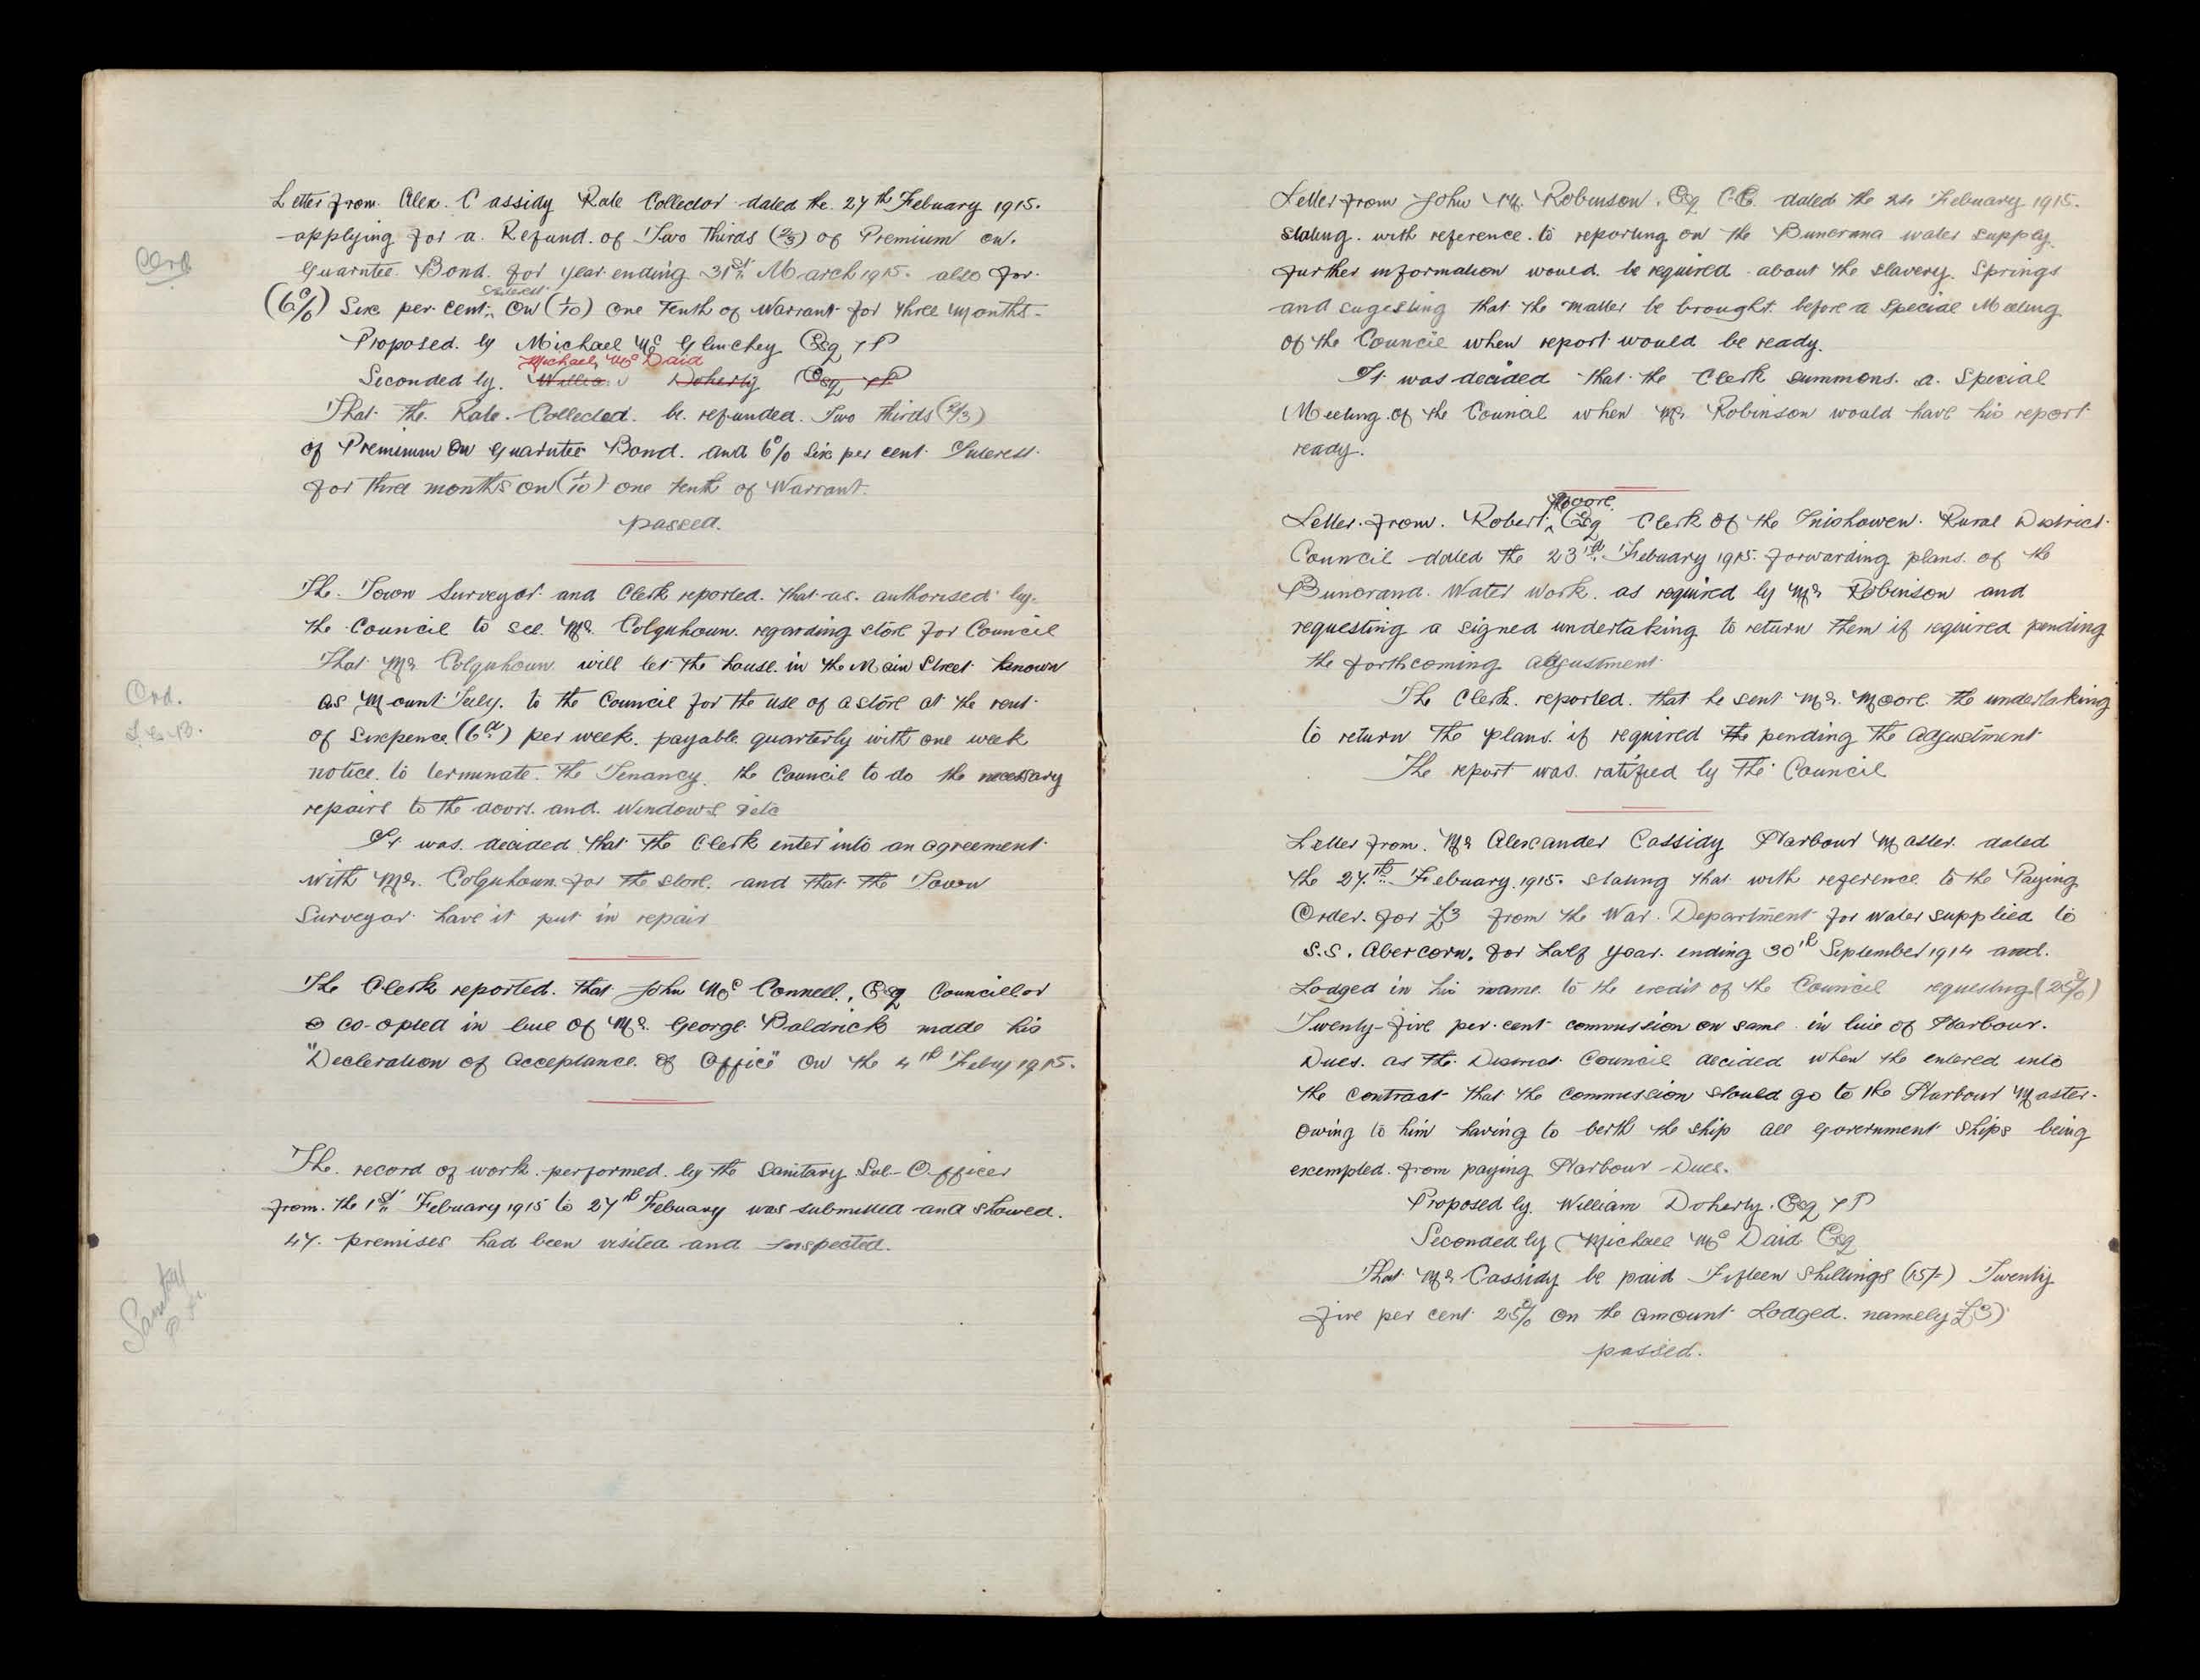 Letter from Alex. Cassidy Rate Collector dated the 27th Febuary 1915.
applying for a Refund of Two Thirds (2/3) of Premium on
Guarntee Bond for year ending 31st March 1915. also for
Ord.
Interest
(6%) Six per cent on (1/10) one Tenth of Warrant for three months.
Proposed by Michael McGlinchey Esq JP
Michael McDaid
Seconded by William Doherty Esq JP
That the Rate Collected be refunded Two thirds (2/3)
of Premium on Guarntee Bond and 6% Six per cent Interest
for three months on (1/10) one tenth of Warrant.
passed.
The Town Surveyor and Clerk reported that as authorised by
the Council to see Mr Colquhoun regarding store for Council
That Mr Colquhoun will let the house in the Main Street known
Ord.
as Mount Tully. to the Council for the use of a store at the rent
L.G.B.
of Sixpence (6d) per week payable quarterly with one week
notice to terminate the Tenancy the Council to do the necessary
repairs to the doors and windows &etc
It was decided that the Clerk enter into an agreement
with Mr. Colquhoun for the store. and that the Town
Surveyor have it put in repair
The Clerk reported that John McConnell, Esq Councillor
co-opted in lieu of Mr. George Baldrick made his
"Decleration of Acceptance of Office" on the 4th Febry 1915.
The record of work performed by the Sanitary Sub-Officer
from the 1st Febuary 1915 to 27th Febuary was submitted and showed
47 premises had been visited and inspected.
Sanitary
Letter from John Robinson Esq C.E. dated the 24 Febuary 1915.
stating with reference to reporting on the Buncrana water supply
further information would be required about the Slavery Springs
and sugesting that the matter be brought before a Special Meeting
of the Council when report would be ready.
It was decided that the Clerk summons a Special
Meeting of the Council when Mr Robinson would have his report
ready.
Moore
Letter from Robert Esq Clerk of the Inishowen Rural District
Council dated the 23rd Febuary 1915. forwarding plans of the
Buncrana Water Work as required by Mr Robinson and
requesting a signed undertaking to return them if required pending
the forthcoming adjustment
The Clerk reported that he sent Mr. Moore the undertaking
to return the plans if required the pending the adjustment
The report was ratified by the Council
Letter from Mr Alexander Cassidy Harbour Master dated
the 27th Febuary 1915. stating that with reference to the Paying
Order for £3 from the War Department for water supplied to
S.S. Abercorn, for half year ending 30th September 1914 and
Lodged in his name to the credit of the Council requesting (25%)
Twenty-five per cent commission on same in lieu of Harbour
Dues as the District Council decided when the entered into
the contract that the commission should go to the Harbour Master
owing to him having to berth the ship all Government ships being
exempted from paying Harbour Dues.
Proposed by William Doherty Esq JP
Seconded by Michael McDaid Esq
That Mr Cassidy be paid Fifteen Shillings (15/-) Twenty
five per cent 25% on the amount Lodged namely £3)
passed.